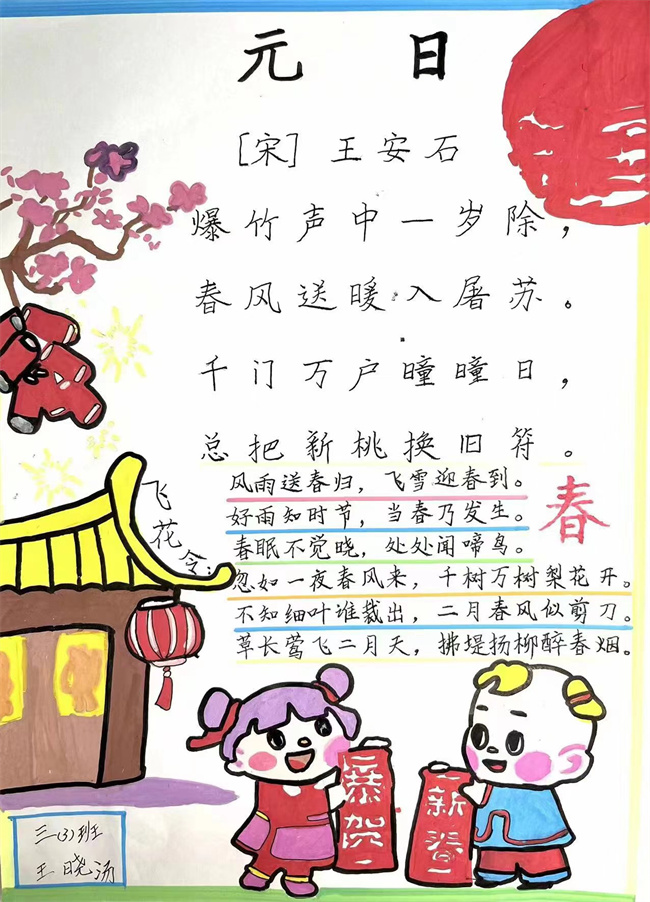 元日
[宋] 王安石
爆竹声中一岁除，
春风送暖入屠苏。
千门万户曈曈日，
总把新桃换旧符。
飞花令:
风雨送春归，飞雪迎春到。
好雨知时节，当春乃发生。
春眠不觉晓，处处闻啼鸟。
忽如一夜春风来，千树万树梨花开。
不知细叶谁裁出，二月春风似剪刀。
草长莺飞二月天，拂堤扬柳醉春烟。
春
恭贺
新春
三(3)班
王晓汤